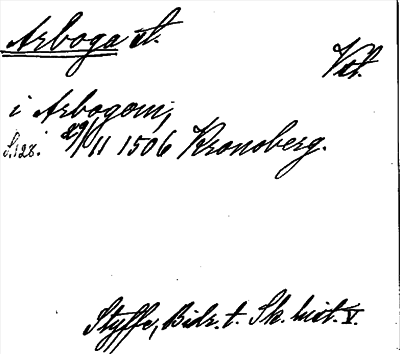 Arboga st.
Vst.
i Arbogom;
S. 128. 29/11 1506 Kronoberg.
Styffe, Bidr. t. Sk. hist. V.